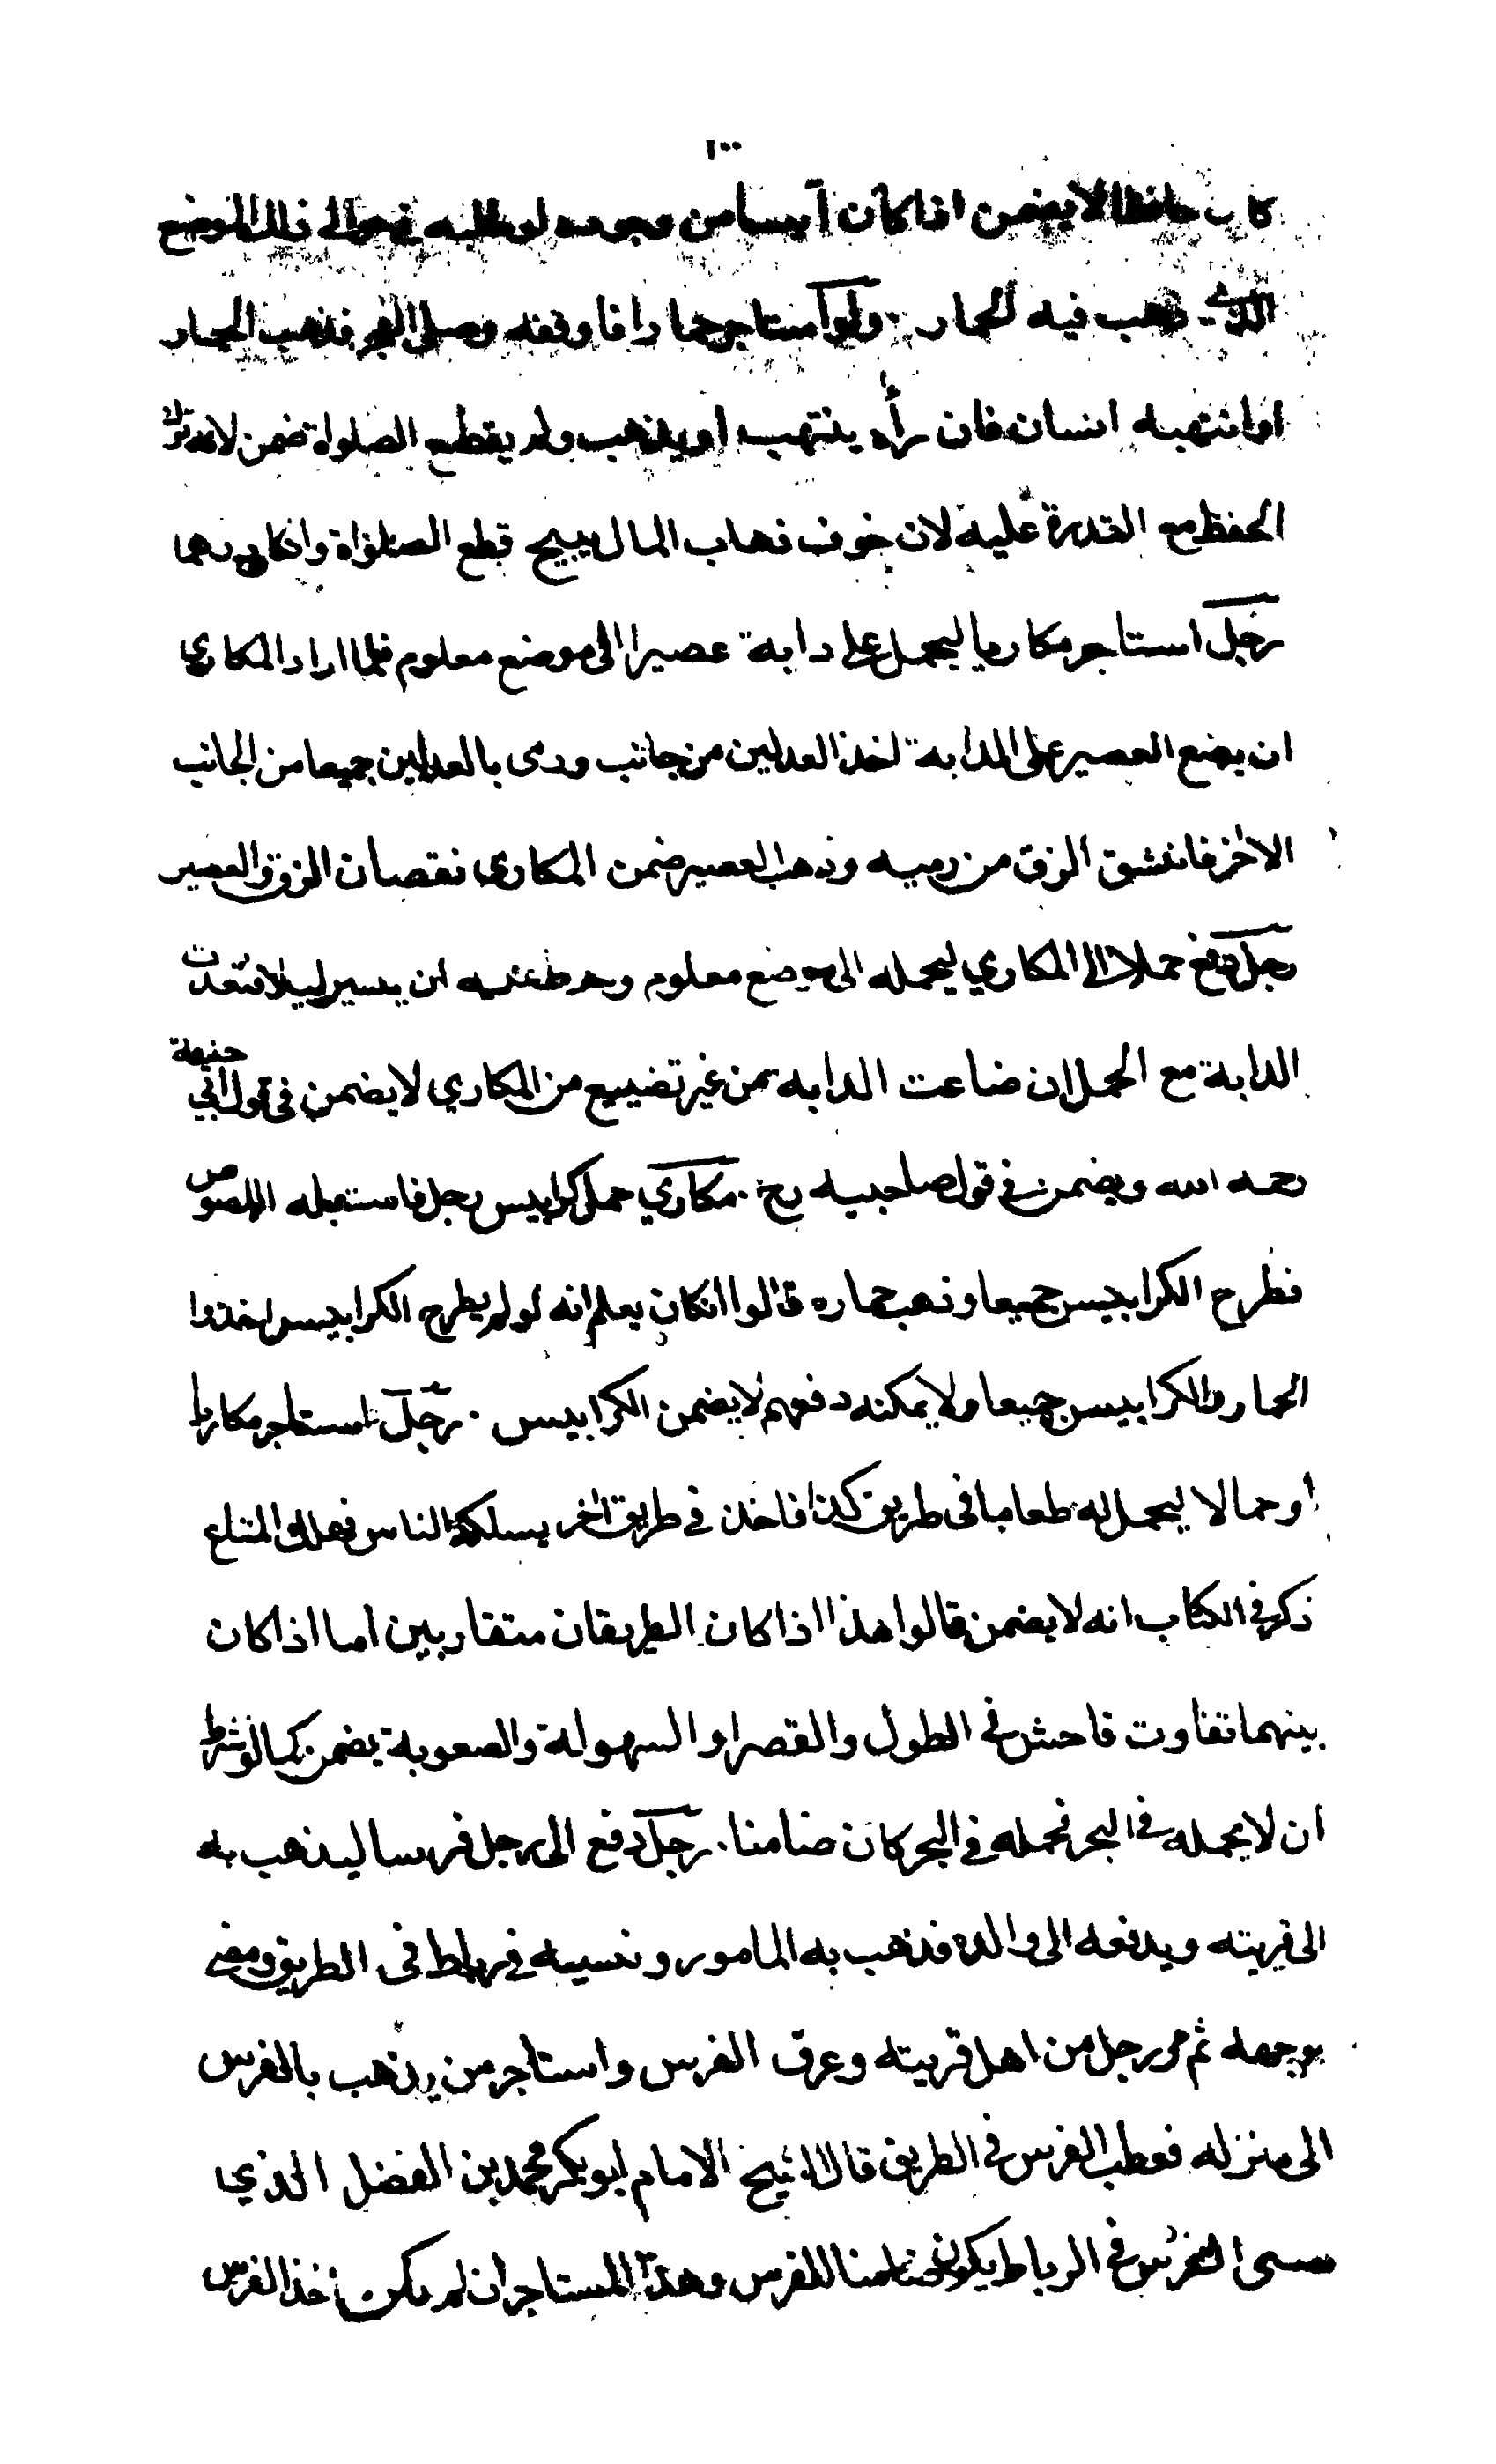 ١٠٠
كان حافظا لا يضمن اذا كان آيسا من وجوده لو طلبه في حوالي ذلك الموضع
الذي ذهب فيه الحمار . ولو استاجر حمارا فاوقفه وصلى الفجر فذهب الحمار
او انتهبه انسان فان رأه ينتهب او يذهب ولم يقطع الصلواة ضمن لانه ترك
الحفظ مع القدرة عليه لان خوف ذهاب المال يبيح قطع الصلواة وان كان درهما
رجل استاجر مكاريا ليحمل على دابة عصيرا الى موضع معلوم فلما اراد المكاري
ان يضع العصير على الدابة اخذ العدلين من جانب ورمى بالعدلين جميعا من الجانب
الاخر فانشق الزق من رميه وذهب العصير ضمن المكاري نقصان الزق والعصير
رجل دفع حملا الى المكاري ليحمله الى موضع معلوم وشرط عليه ان يسير ليلا فتعدت
الدابة مع الحمل ان ضاعت الدابه من غير تضييع من المكاري لا يضمن في قول ابي حنيفة
رحمه الله ويضمن في قول صاحبيه رح . مكاري حمل كرابيس رجل فاستقبله اللصوص
فطرح الكرابيس جميعا وذهب بحماره قالوا انكان يعلم انه لو لم يطرح الكرابيس اخذوا
الحمار والكرابيس جميعا ولا يمكنه دفعهم لا يضمن الكرابيس . رجل استاجر مكاريا
او حمالا ليحمل له طعاما في طريق كذا فاخذ في طريق اخر يسلكه الناس فهلك المتاع
ذكر في الكتاب انه لا يضمن قالوا هذا اذا كان الطريقان متقاربين اما اذا كان
بينهما تفاوت فاحش في الطول والقصر او السهولة والصعوبة يضمن كما لو شرط
ان لا يحمله في البحر فحمله في البحر كان ضامنا . رجل دفع الى رجل فرسا ليذهب به
الى قريته ويدفعه الى والده فذهب به المامور ونسيه في رباط في الطريق ومضى
بوجهه ثم مر رجل من اهل قريته وعرف الفرس واستاجر من يذهب بالفرس
الى منزله فعطب الفرس في الطريق قال الشيخ الامام ابو بكر محمد بن الفضل الذي
نسى الفرس في الرباط يكون ضامنا للفرس وهذا المستاجر ان لم يكن اخذ الفرس